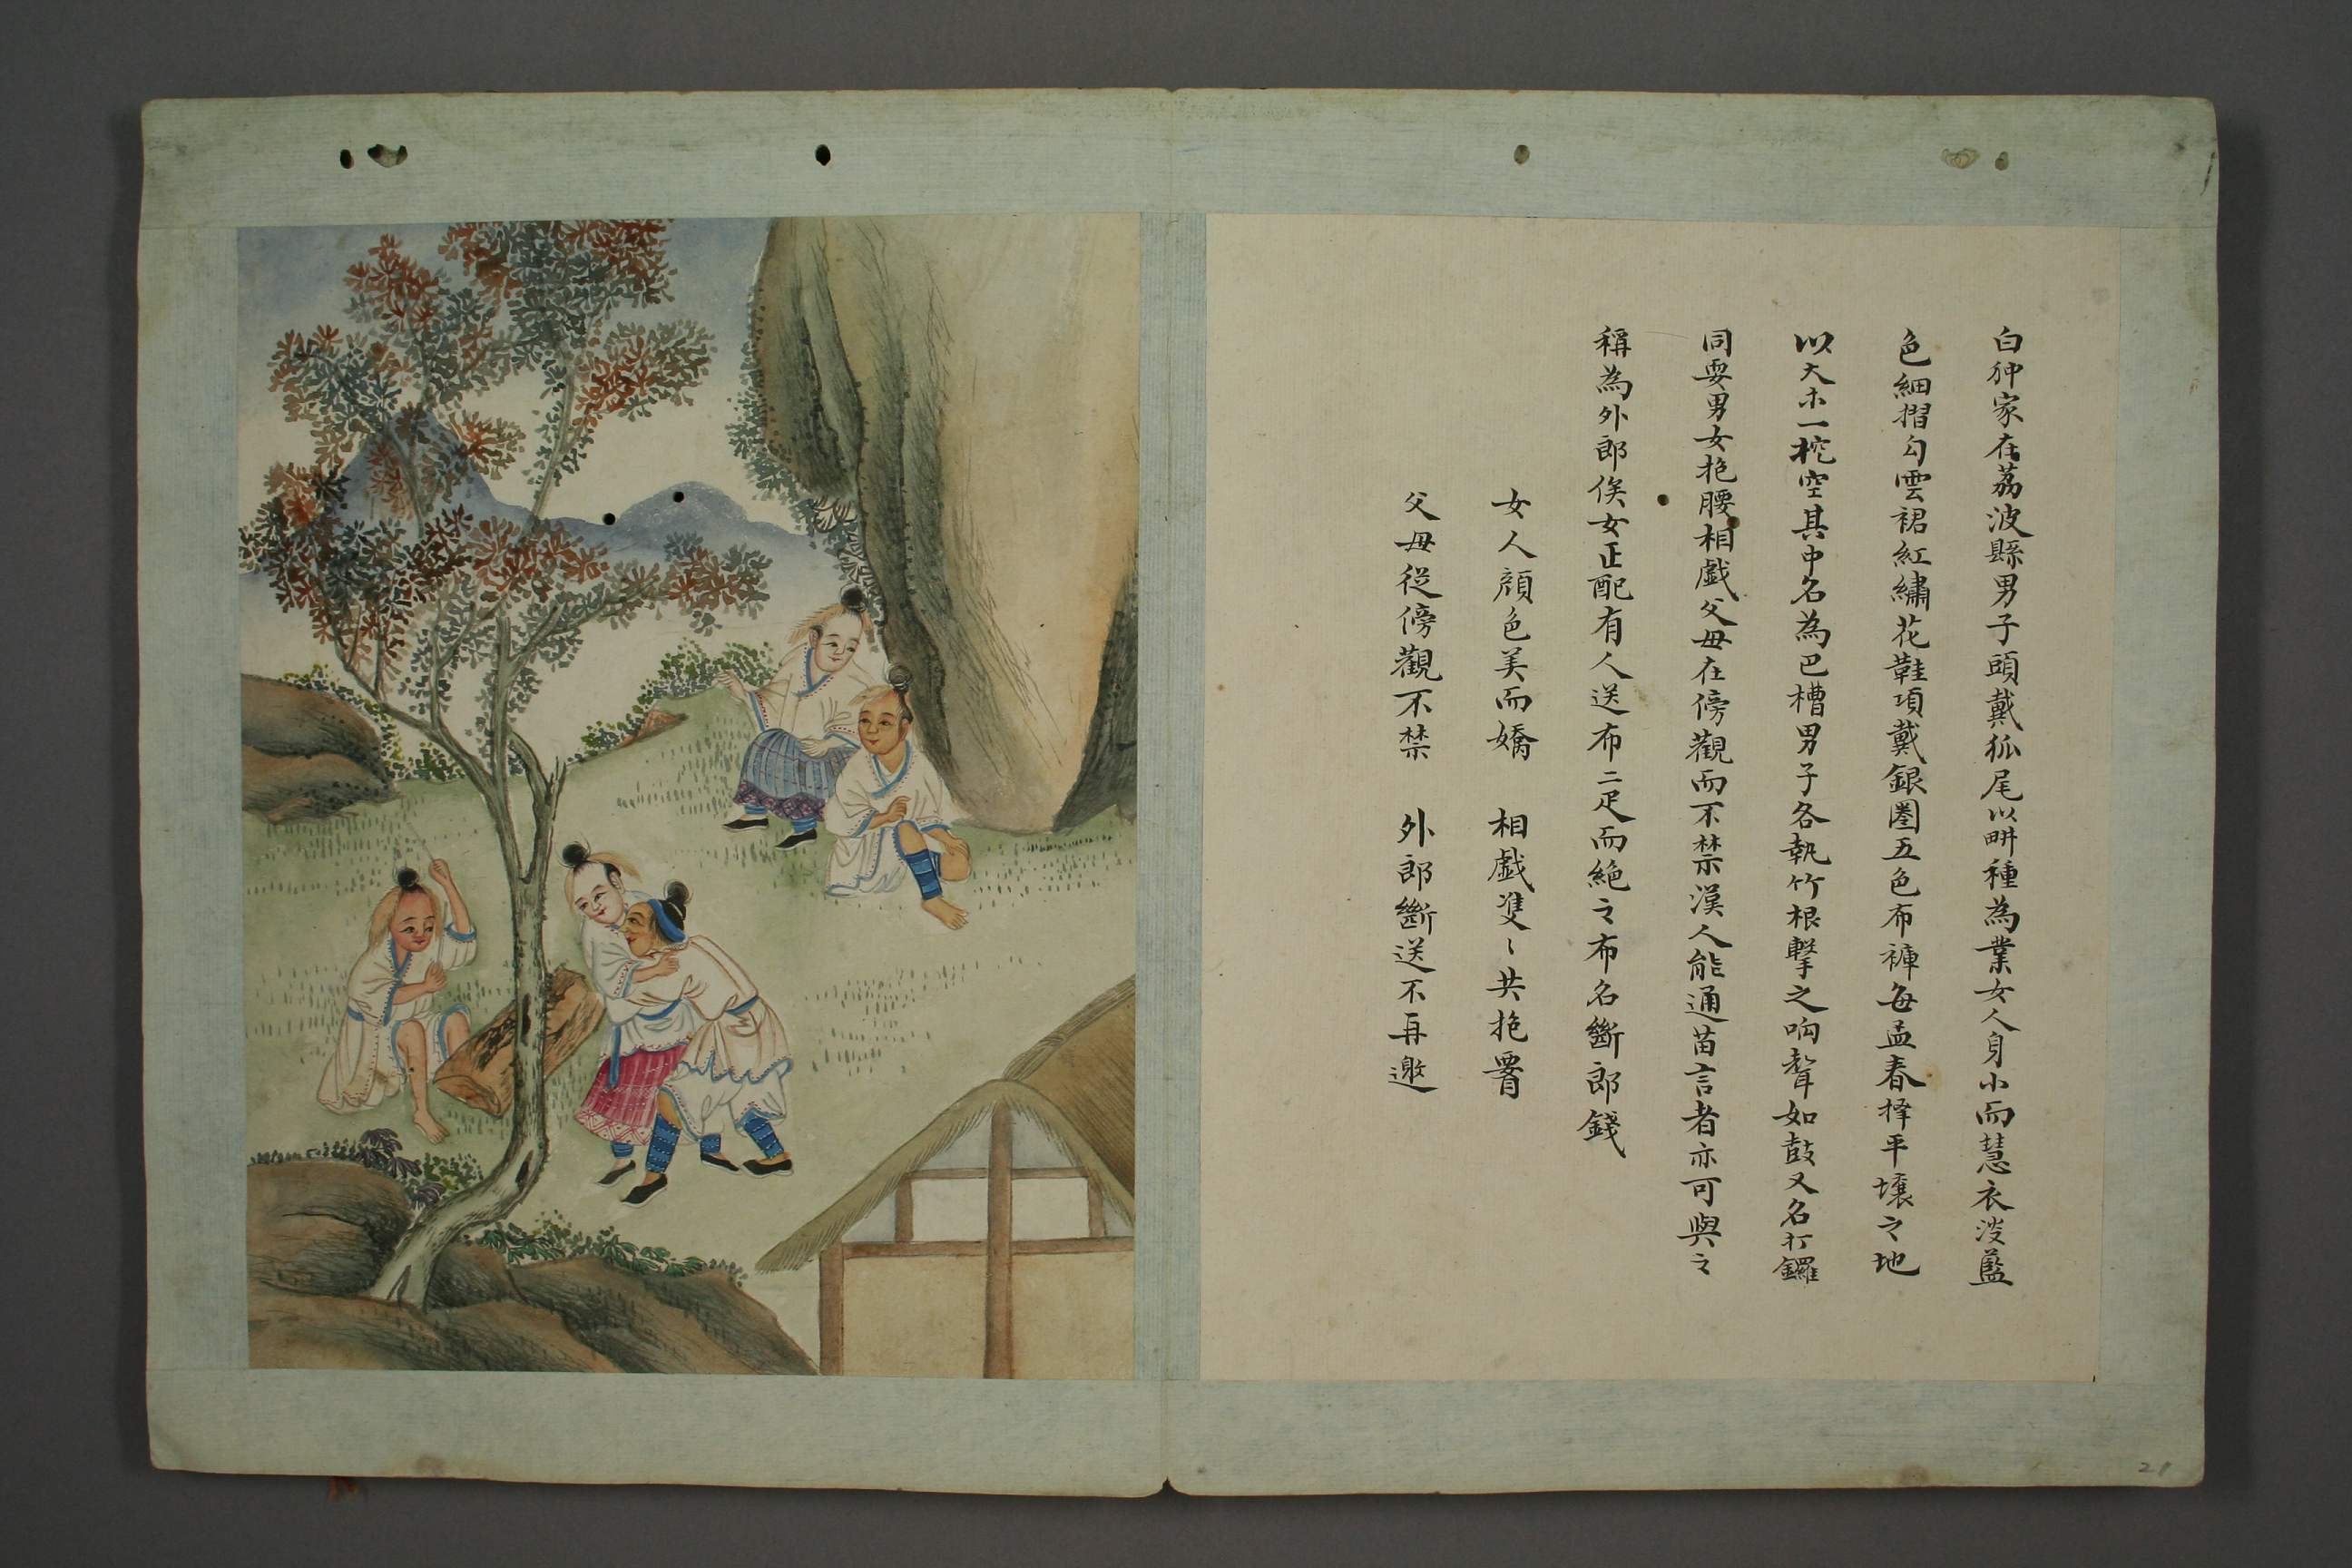 白狆家在荔波縣男子頭戴狐尾以畊種為業女人身小而慧衣淡藍
色細摺勾雲裙紅繡花鞋項戴銀圈五色布褲每孟春擇平壤之地
以大木一挖空其中名為巴槽男子各執竹根擊之响聲如鼓又名打鑼
同耍男女抱腰相戲父母在傍觀而不禁漢人能通苗言者亦可與之
稱為外郎俟女正配有人送布二疋而絕之布名斷郎錢
女人顏色美而嬌　相戲雙〻共抱
父母從傍觀不禁　外郎斷送不再邀
21